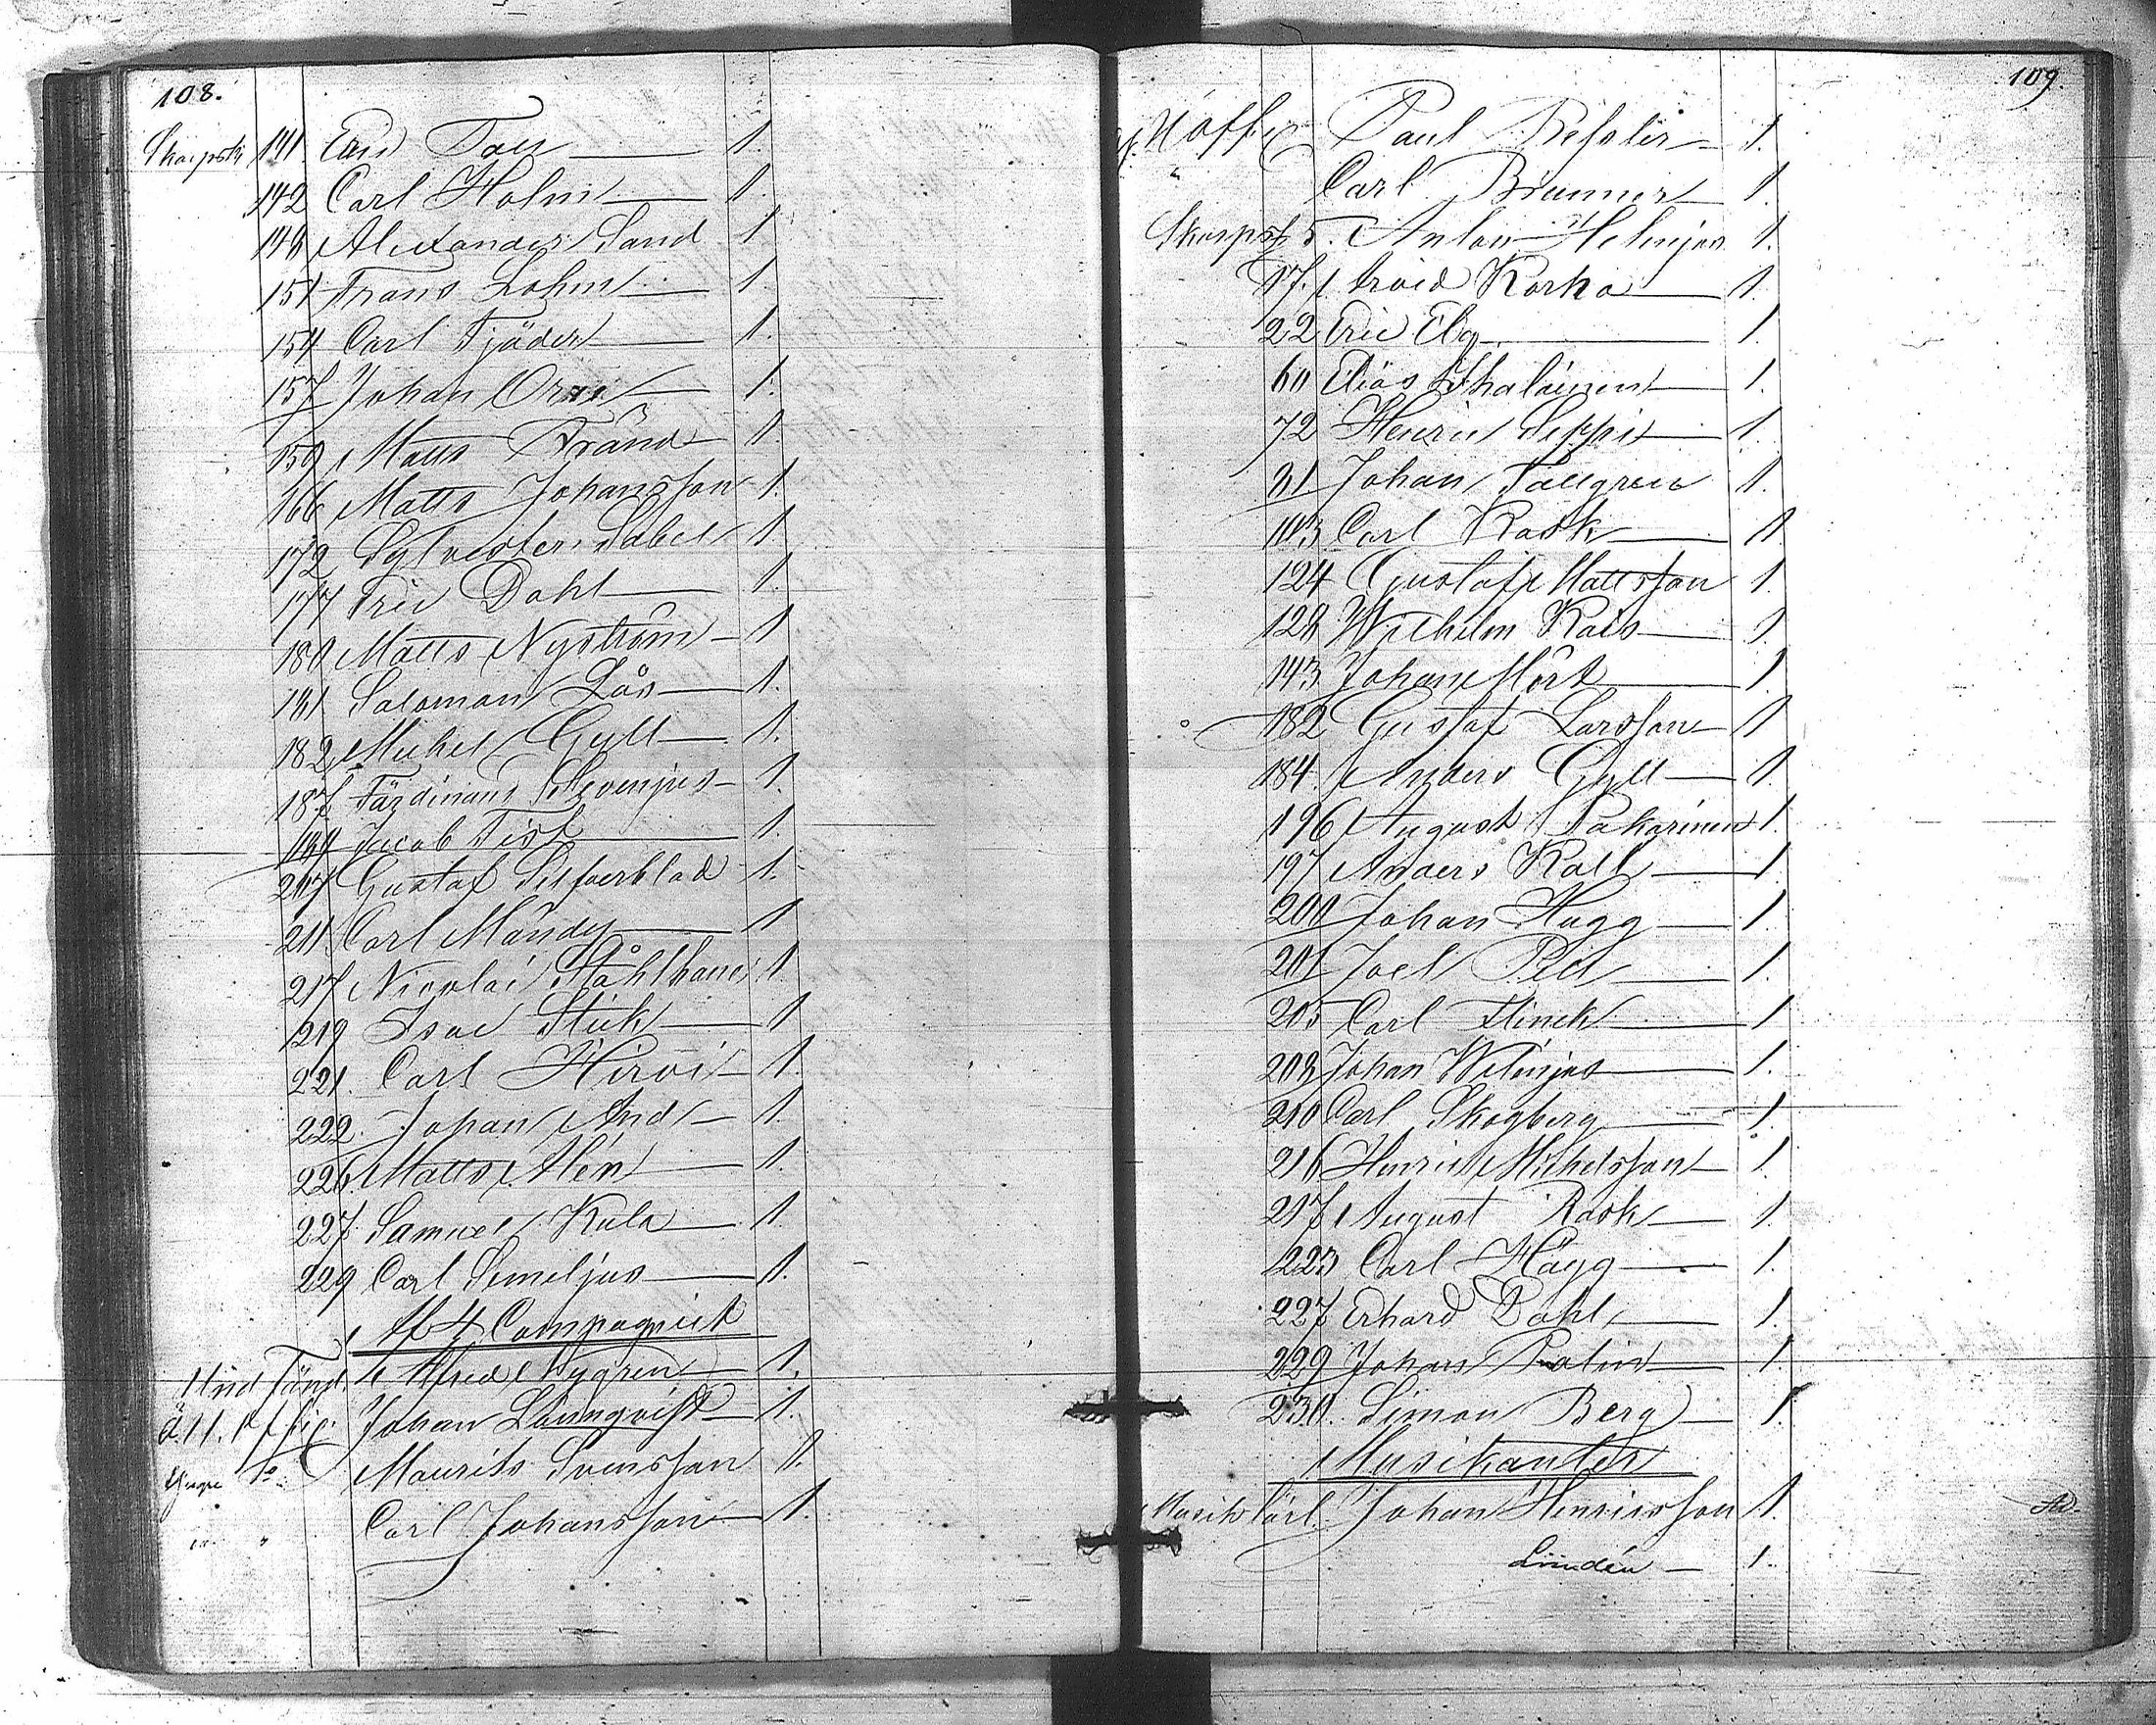 108.
Skarpsk. 141 Eric
142 Carl Holm 1.
148 Alexander Sand 1.
151 Frans Lohm 1.
154 Carl Tjäder 1.
157 Johan 1.
159 Matts Fränd 1.
166 Matts Johansson 1.
172 Sylvester Sabel 1.
177 Eric Dahl 1.
180 Matts Nyström 1
181 Salomon Lås 1.
182 Michel Gyll 1.
187 Färdinand 1.
189 Jacob Fisk 1.
207 Gustaf Silfverblad 1.
211. Carl Mandy 1
217 Nicolai Ståhlhane 1
219 Isac Stick 1
221. Carl Hirvi 1.
222. Johan And 1.
226. Matts Alén 1.
227. Samuel Kula 1
229 Carl Semeljus 1.
Af 4 Compagniet
Und. Fänd. Alfred Nygren 1.
Johan Lönnqvist 1.
Yngre d:o Maurits Svensson 1.
" " Carl Johansson 1.
109.
Paul 1.
" Carl Brunner 1
Skarpsk. 5. Anton Helenjus 1.
17. Arvid Korka 1.
22 Eric Elg 1
60 Elias Ihalainen 1.
72 Henric Seppi 1.
91 Johan Tallgren 1.
103 Carl Rask 1
124 Gustaf Mattsson 1.
128 Wilhelm Kais 1
143 Johan Mört 1
182 Gustaf Larsson 1
184. Anders Gyll 1
196 August Pakarinen 1.
197 Anders Kall 1
200 Johan Hugg 1.
201 Joel Pil 1.
205 Carl Flinck 1
208 Johan Welenjus 1.
210 Carl Skogberg 1.
216 Henric Michelsson 1
217 August Rask 1.
223 Carl Hägg 1.
227 Erhard Dahl 1.
229 Johan Palin 1.
230. Simon Berg 1.
Musikanter
Musik Karl. Johan Henricsson 1.
Lindén 1.